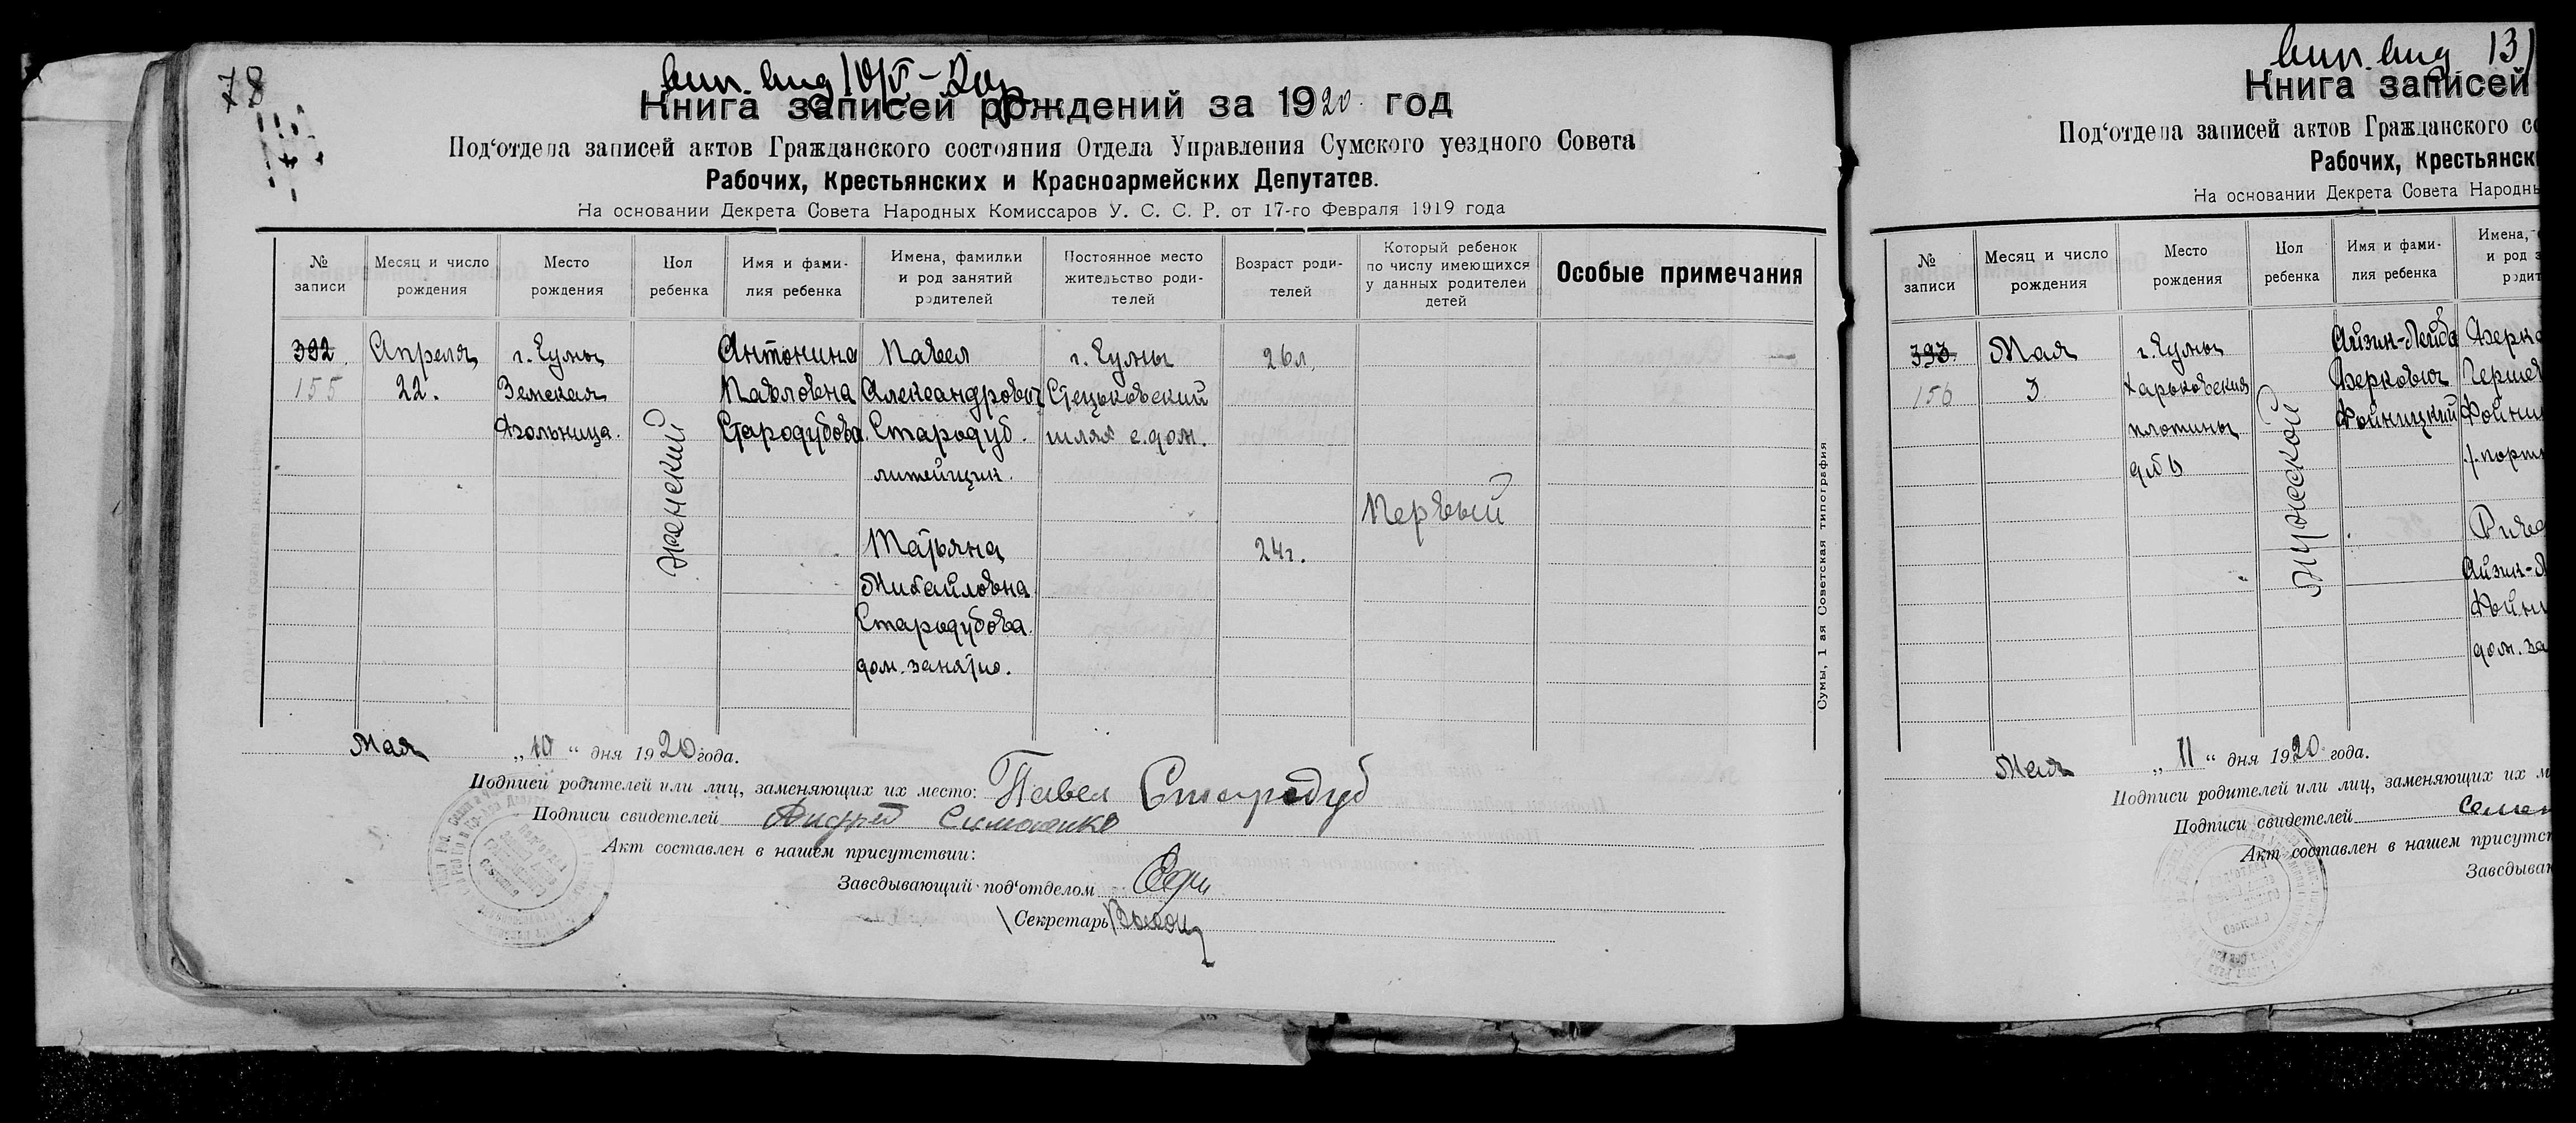 78
Книга записей рождений за 1920 год
Под‘отдела записей актов Гражданского состояния Отдела Управления Сумского уездного Совета
Рабочих, Крестьянских и Красноармейских Депутатов.
На основании Декрета Совета Народных Комиссаров У. С. С. Р. от 17-го Февраля 1919 года
№ записи
Месяц и число рождения
Место рождения
Пол ребенка
Имя и фами-
лия ребенка
Имена, фамилии
и род занятий
родителей
Постоянное место
жительство роди-
телей
Возраст роди-
телей
Который ребенок
по числу имеющихся
у данных родителей
детей
Особые примечания
392
155
Апреля
22.
г. Сумы
Земская
больница.
женский
Антонина
Павловна
Стародубова
Павел
Александрович
Стародуб.
литейщик.
Татьяна
Михайловна
Стародубова.
дом. занятие.
г. Сумы
Стецьковский
шлях с. дом.
26 л.
24 г.
Первый
Сумы, 1 ая Советская типография
Мая „10“ дня 1920 года.
Подписи родителей или лиц, заменяющих их место: Павел Стародуб
Подписи свидетелей Андрей
Акт составлен в нашем присутствии:
Заведывающий под‘отделом
Секретарь
Книга записей
Под‘отдела записей актов Гражданского со
Рабочих, Крестьянск
На основании Декрета Совета Народн
№ записи
Месяц и число рождения
Место рождения
Пол ребенка
Имя и фами-
лия ребенка
Имена,
и род з
родит
393
156
Мая
3
г. Сумы
Харьковския
плотины
мужеской
Айзик-Лейба
Беркович
Фойницкий
Берко
Гершев
Фойни
порт
Айзик-Л
Фойни
дом. за
Мая „11“ дня 1920 года.
Подписи родителей или лиц, заменяющих их м
Подписи свидетелей
Акт составлен в нашем присутст
Заведыва